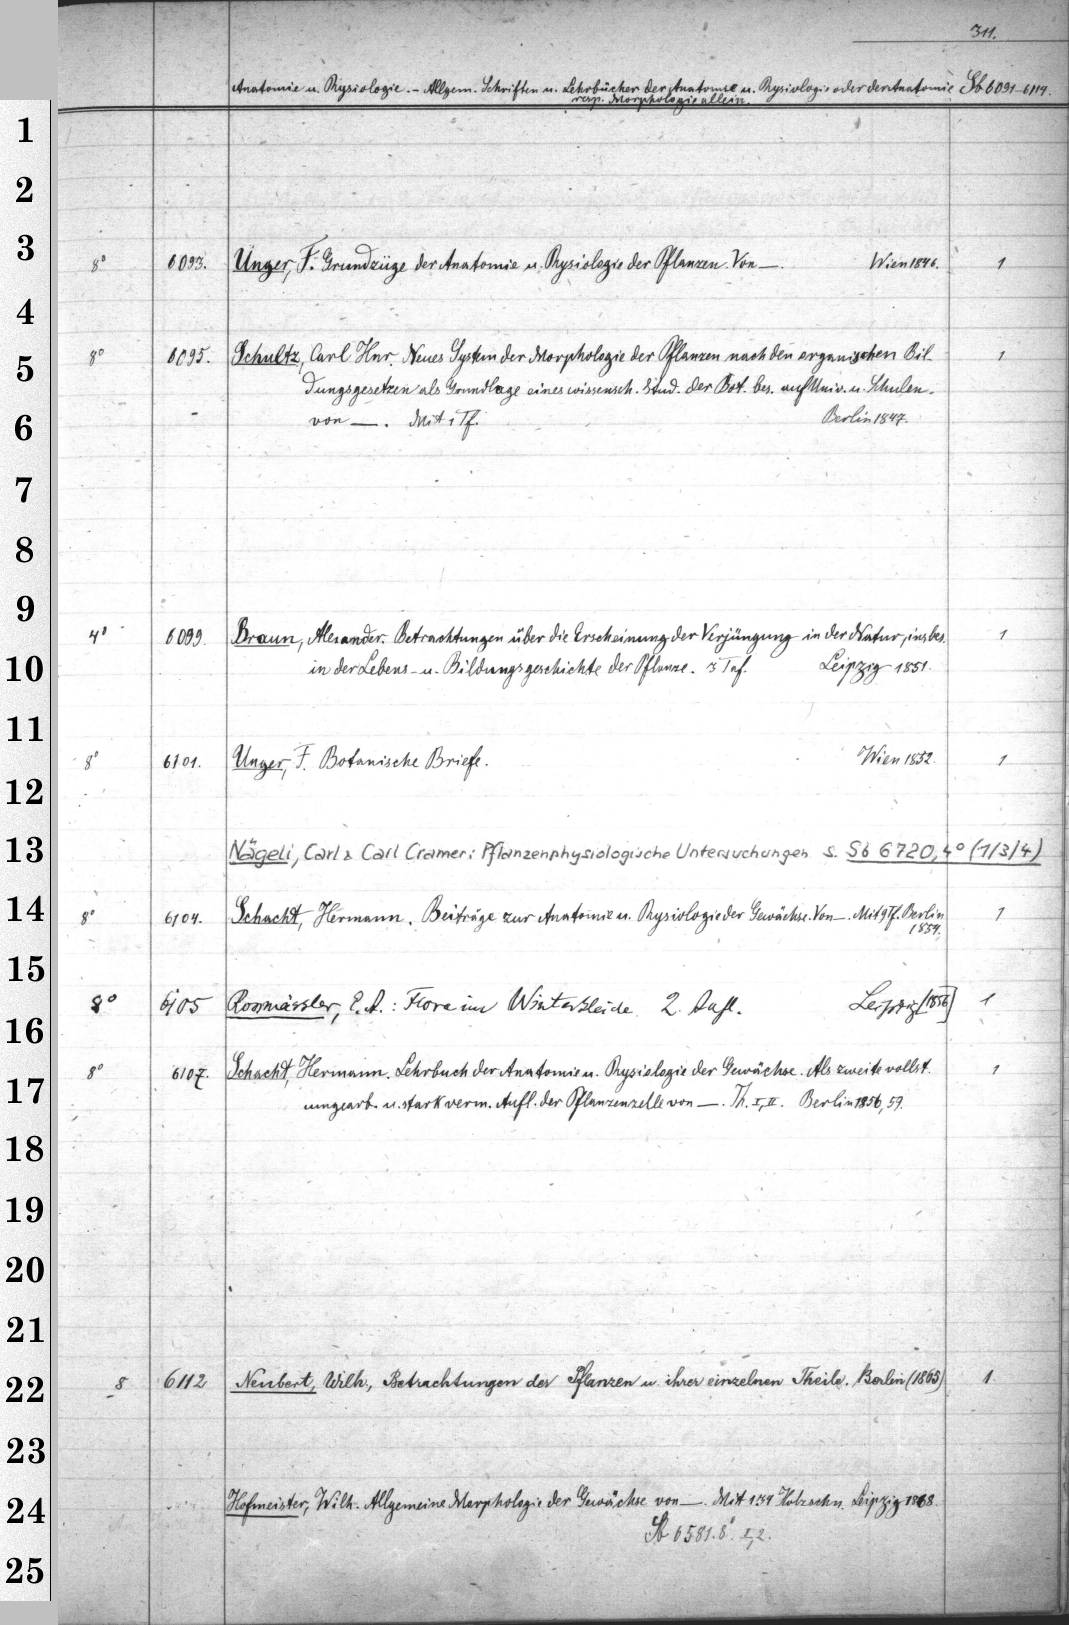 311.
Anatomie u. Physiologie. - Allgem. Schriften u. Lehrbücher der Anatomie u. Physiologie oder der Anatomie Sb 6091-6114.
resp. Morphologie allein.
1
2
3
8° 6093. Unger, F. Grundzüge der Anatomie u. Physiologie der Pflanzen. Von —. Wien 1846. 1
4
8° 6095. Schultz, Carl Hnr. Neues System der Morphologie der Pflanzen nach den organischen Bil- 1
5
dungsgesetzen als Grundlage eines wissensch. Stud. der Bot. bes. auf Univ. u. Schulen.
6
von —. Mit 1 Tf. Berlin 1847.
7
8
9
4° 6099. Braun, Alexander. Betrachtungen über die Erscheinung der Verjüngung in der Natur, insbes. 1
10
in der Lebens- u. Bildungsgeschichte der Pflanze. 3 Taf. Leipzig 1851.
11
8° 6101. Unger, F. Botanische Briefe. Wien 1852. 1
12
13
Nägeli, Carl & Carl Cramer: Pflanzenphysiologische Untersuchungen s. Sb 6720, 4° (1/3/4)
14
8° 6104. Schacht, Hermann. Beiträge zur Anatomie u. Physiologie der Gewächse. Von —. Mit 9 Tf. Berlin 1
1854.
15
8° 6105 Rossmässler, E. A.: Flora im Winterkleide 2. Aufl. Leipzig [1856] 1
16
8° 6107. Schacht, Hermann. Lehrbuch der Anatomie u. Physiologie der Gewächse. Als zweite vollst. 1
17
umgearb. u. stark verm. Aufl. der Pflanzenzelle von —. Th. I, II. Berlin 1856, 59.
18
19
20
21
22
8 6112 Neubert, Wilh., Betrachtungen der Pflanzen u. ihrer einzelnen Theile. Berlin (1865) 1
23
24
Hofmeister, Wilh. Allgemeine Morphologie der Gewächse von —. Mit 134 Holzschn. Leipzig 1868.
Sb 6581. 8°. I, 2.
25